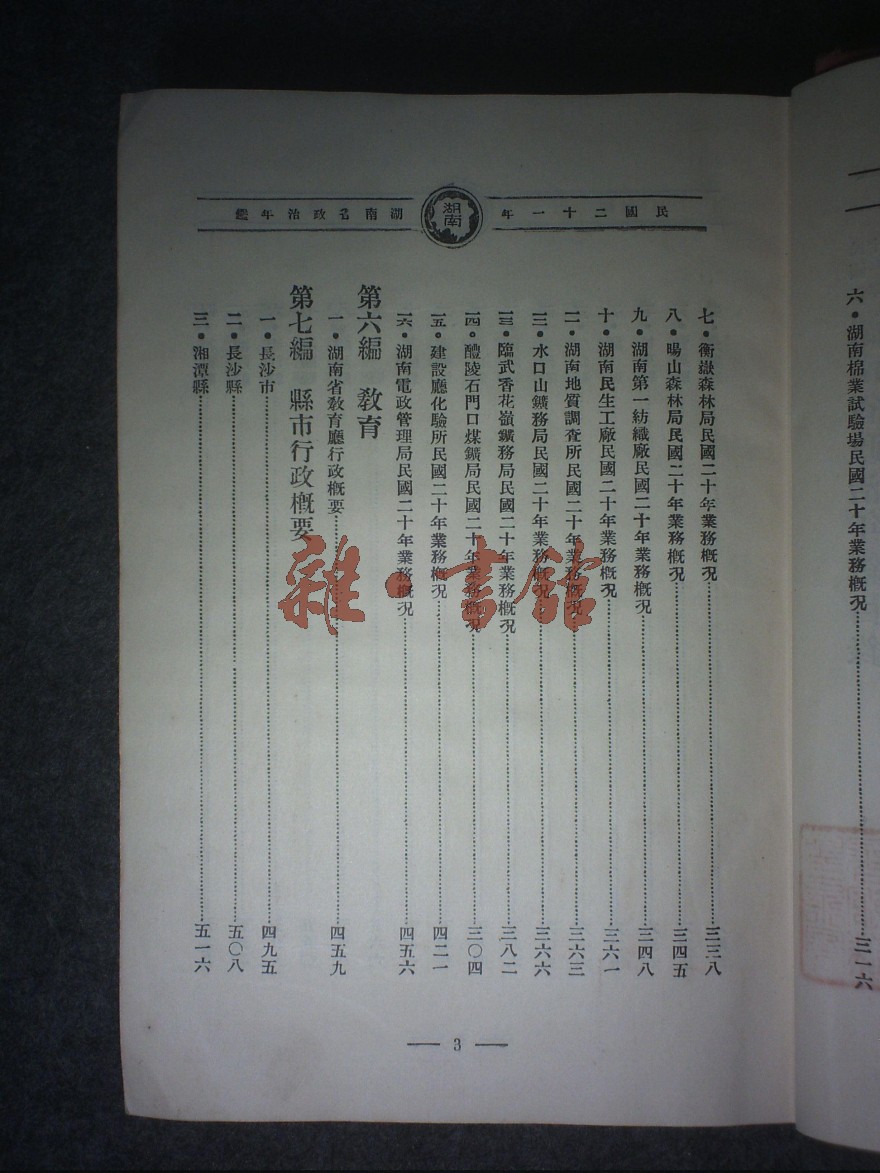 六•湖南棉業試驗場民國二十年業務概况……三一六
民國二十一年 湖南 湖南省政治年鑑
七•衡嶽森林局民國二十年業務概况……三三八
八•暘山森林局民國二十年業務概况……三四五
九•湖南第一紡織廠民國二十年業務概况……三四八
十•湖南民生工廠民國二十年業務概况……三六一
一一•湖南地質調查所民國二十年業務概况……三六三
一二•水口山鑛務局民國二十年業務概况……三六六
一三•臨武香花嶺鑛務局民國二十年業務概况……三八二
一四•醴陵石門口煤鑛局民國二十年業務概况……三〇四
一五•建設廳化驗所民國二十年業務概况……四二一
一六•湖南電政管理局民國二十年業務概况……四五六
第六編 教育
一•湖南省教育廳行政概要……四五九
第七編 縣市行政概要
一•長沙市……四九五
二•長沙縣……五〇八
三•湘潭縣……五一六
— 3 —
雜·書館